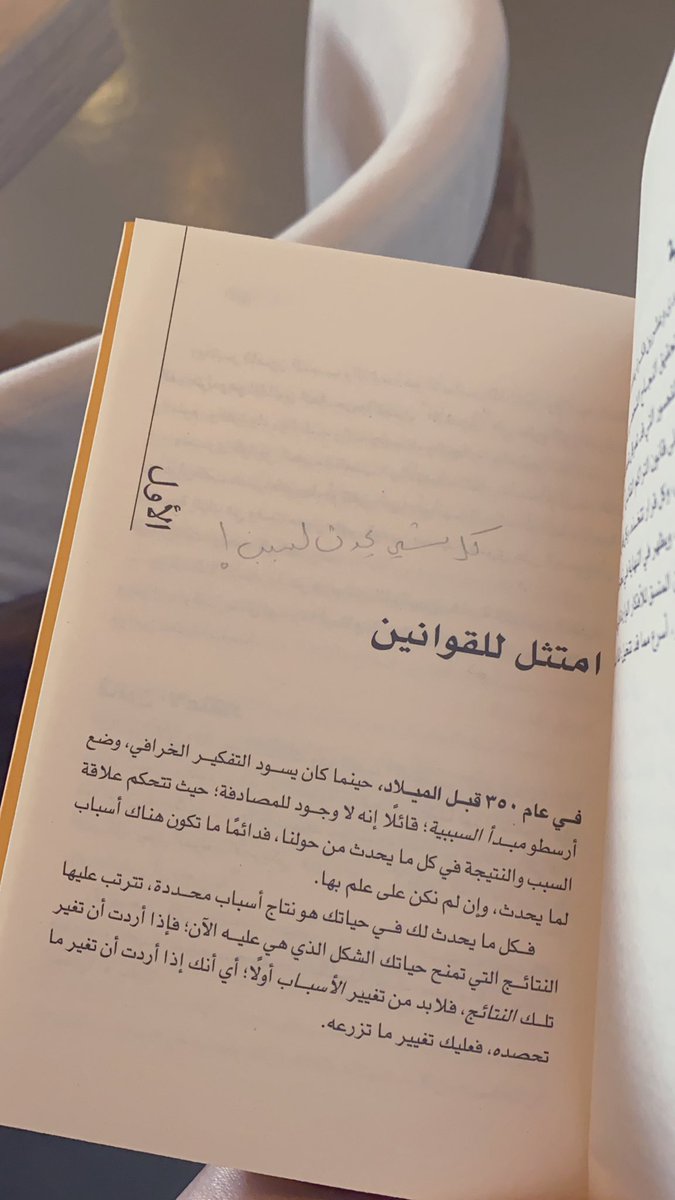 الأول
كل شيء يحدث لسبب!
امتثل للقوانين
في عام ٣٥٠ قبل الميلاد، حينما كان يسود التفكير الخرافي، وضع
أرسطو مبدأ السببية؛ قائلًا إنه لا وجود للمصادفة؛ حيث تتحكم علاقة
السبب والنتيجة في كل ما يحدث من حولنا، فدائمًا ما تكون هناك أسباب
لما يحدث، وإن لم نكن على علم بها.
فكل ما يحدث لك في حياتك هو نتاج أسباب محددة، تترتب عليها
النتائج التي تمنح حياتك الشكل الذي هي عليه الآن؛ فإذا أردت أن تغير
تلك النتائج، فلابد من تغيير الأسباب أولًا؛ أي أنك إذا أردت أن تغير ما
تحصده، فعليك تغيير ما تزرعه.